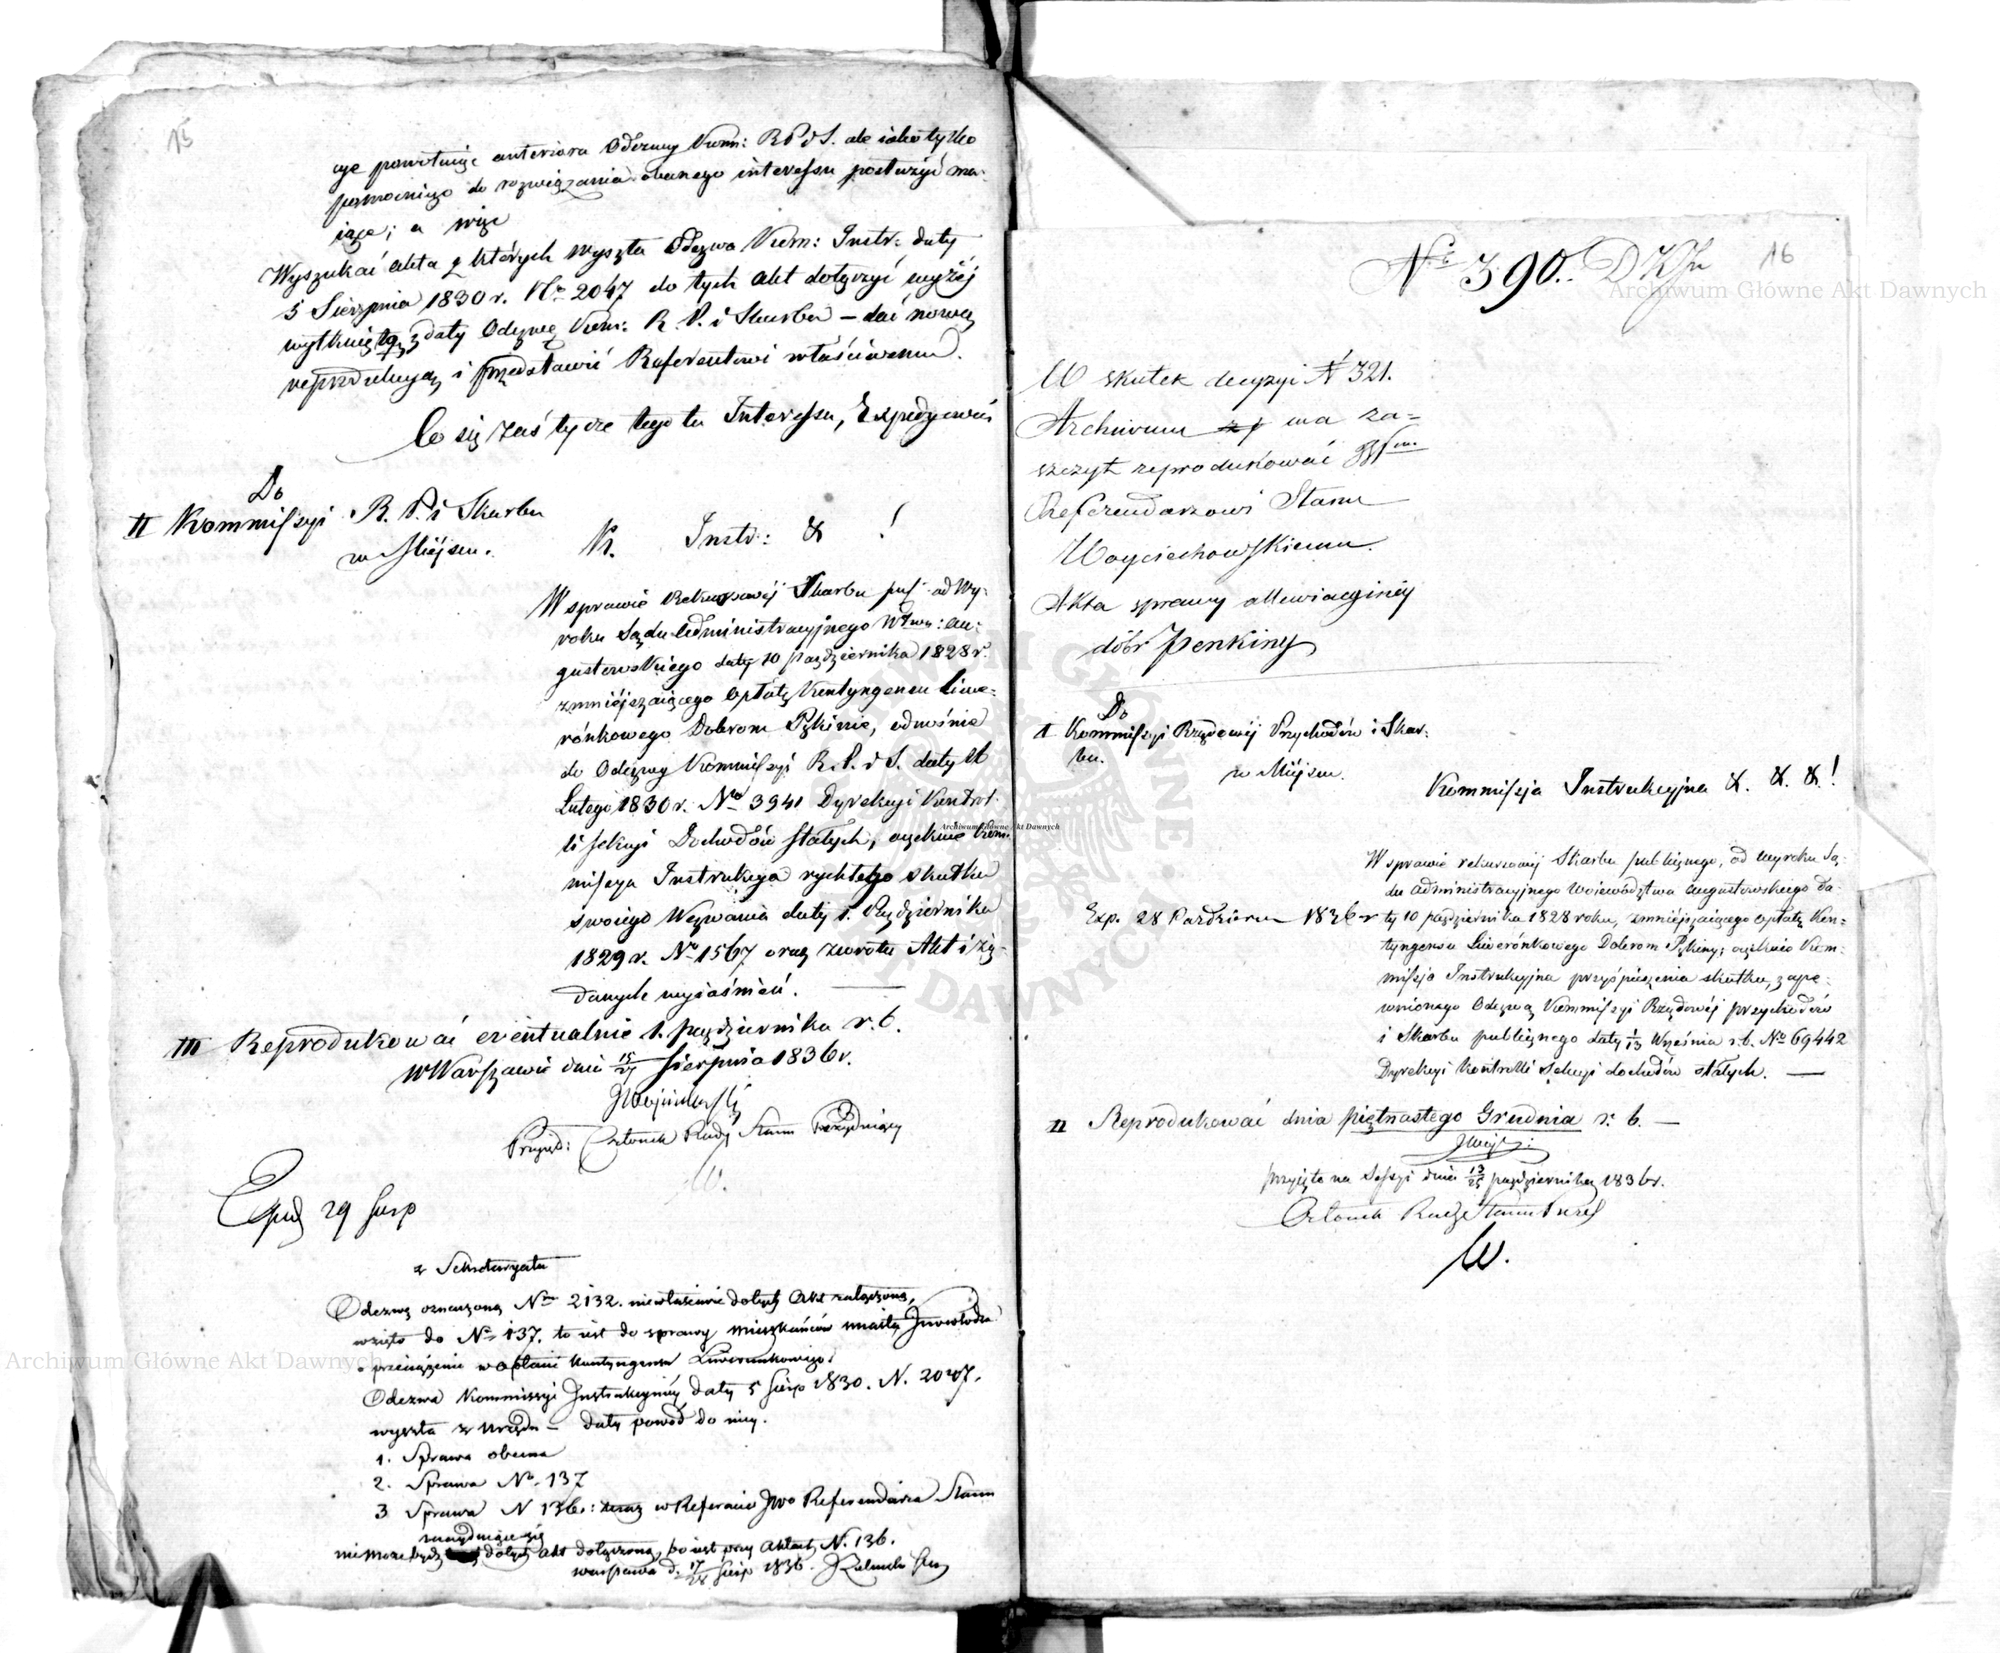 15
cye powołuiąc anteriora Odezwy Komm: R P i S. ale iako tylko
pomocnicze do rozwiązania obecnego interessu posłużyć ma-
iące; a więc
Wyszukać akta z których wyszła Odezwa Kom: Instr: daty
5 Sierpnia 1830 r. No 2047 do tych akt dołączyć wyżej
wytkniętą z daty Odezwę Kom: R. P. i Skarbu – dać nową
reprodukcyą i przedstawić Referentowi właściwemu.
Co się zaś tycze tego tu Interessu, Expedyować
Do
II Kommissyi R. P. i Skarbu
w Miejscu.
K. Instr: & !
W sprawie Rekursowej Skarbu pub. od Wy-
roku Sądu Administracyjnego Wdztwa: Au-
gustowskiego daty 10 Października 1828 r.
zmniejszaiącego opłatę Kontyngensu liwe-
rónkowego Dobrom Pękinie, odnośnie
do Odezwy Kommissyi R. P. i S. daty
Lutego 1830 r. No 3941 Dyrekcyi Kontrol-
li sekcyi Dochodów stałych, oczekuie Kom-
missya Instrukcyja rychłego skutku
swoiego Wezwania daty 1. Października
1829 r. No 1567 oraz zwrotu Akt i żą-
danych wyiaśnień. —
III Reprodukować eventualnie 1. października r. b.
w Warszawie dnia 15/27 Sierpnia 1836 r.
Przyięto: Członek Rady Stanu Prezyduiący
W.
Exped 29 Sierp
z Sekretaryatu
Odezwę oznaczoną No 2132. niewłaściwie do tych Akt załączoną,
wzięto do No 137. to iest do sprawy mieszkańców miasta Inowłodza
o przeciążenie w opłacie kontyngensu Liwerunkowego.
Odezwa Kommissyi Instrukcyinéy daty 5 Sierp 1830. N. 2047.
wyszła z urzędu – dały powód do niey.
1. Sprawa obecna
2. Sprawa No 137
3 Sprawa N 136: teraz w Referacie JWo Referendarza Stanu
znayduiące się
nie może bydź do tych akt dołączoną, bo iest przy Aktach N. 136.
Warszawa d. 17/28 Sierp 1836.
No 390. D K In 16
Archiwum Główne Akt Dawnych
W skutek decyzyi N 321.
Archiwum ma za-
szczyt reprodukować
Referendarzowi Stanu
Woyciechowskiemu.
Akta sprawy allewiacyinéy
dóbr Penkiny
Do
I Kommissyi Rządowéj Przychodów i Skar-
bu.
w Miejscu.
Kommissja Instrukcyjna &. &. &. !
W sprawie rekursowéj Skarbu publicznego, od wyroku Są-
du administracyjnego Województwa augustowskiego da-
Exp. 28 Październ 1836 r
ty 10 października 1828 roku, zmniejszaiącego opłatę Kon-
tyngensu Liwerónkowego Dobrom Pękiny; oczekuie Kom-
missja Instrukcyjna przyśpieszenia skutku, zape-
wnionego Odezwą Kommissyi Rządowéj przychodów
i Skarbu publicznego daty 1/13 Września r. b. No 69442
Dyrekcyi Kontrolli Sekcyi dochodów stałych. —
II Reprodukować dnia piętnastego Grudnia r. b. —
przyjęto na Sessyi dnia 13/25 października 1836 r.
Członek Rady Stanu Prezyd
W.
Archiwum Główne Akt Dawnych
ARCHIWUM GŁÓWNE AKT DAWNYCH
Archiwum Główne Akt Dawnych